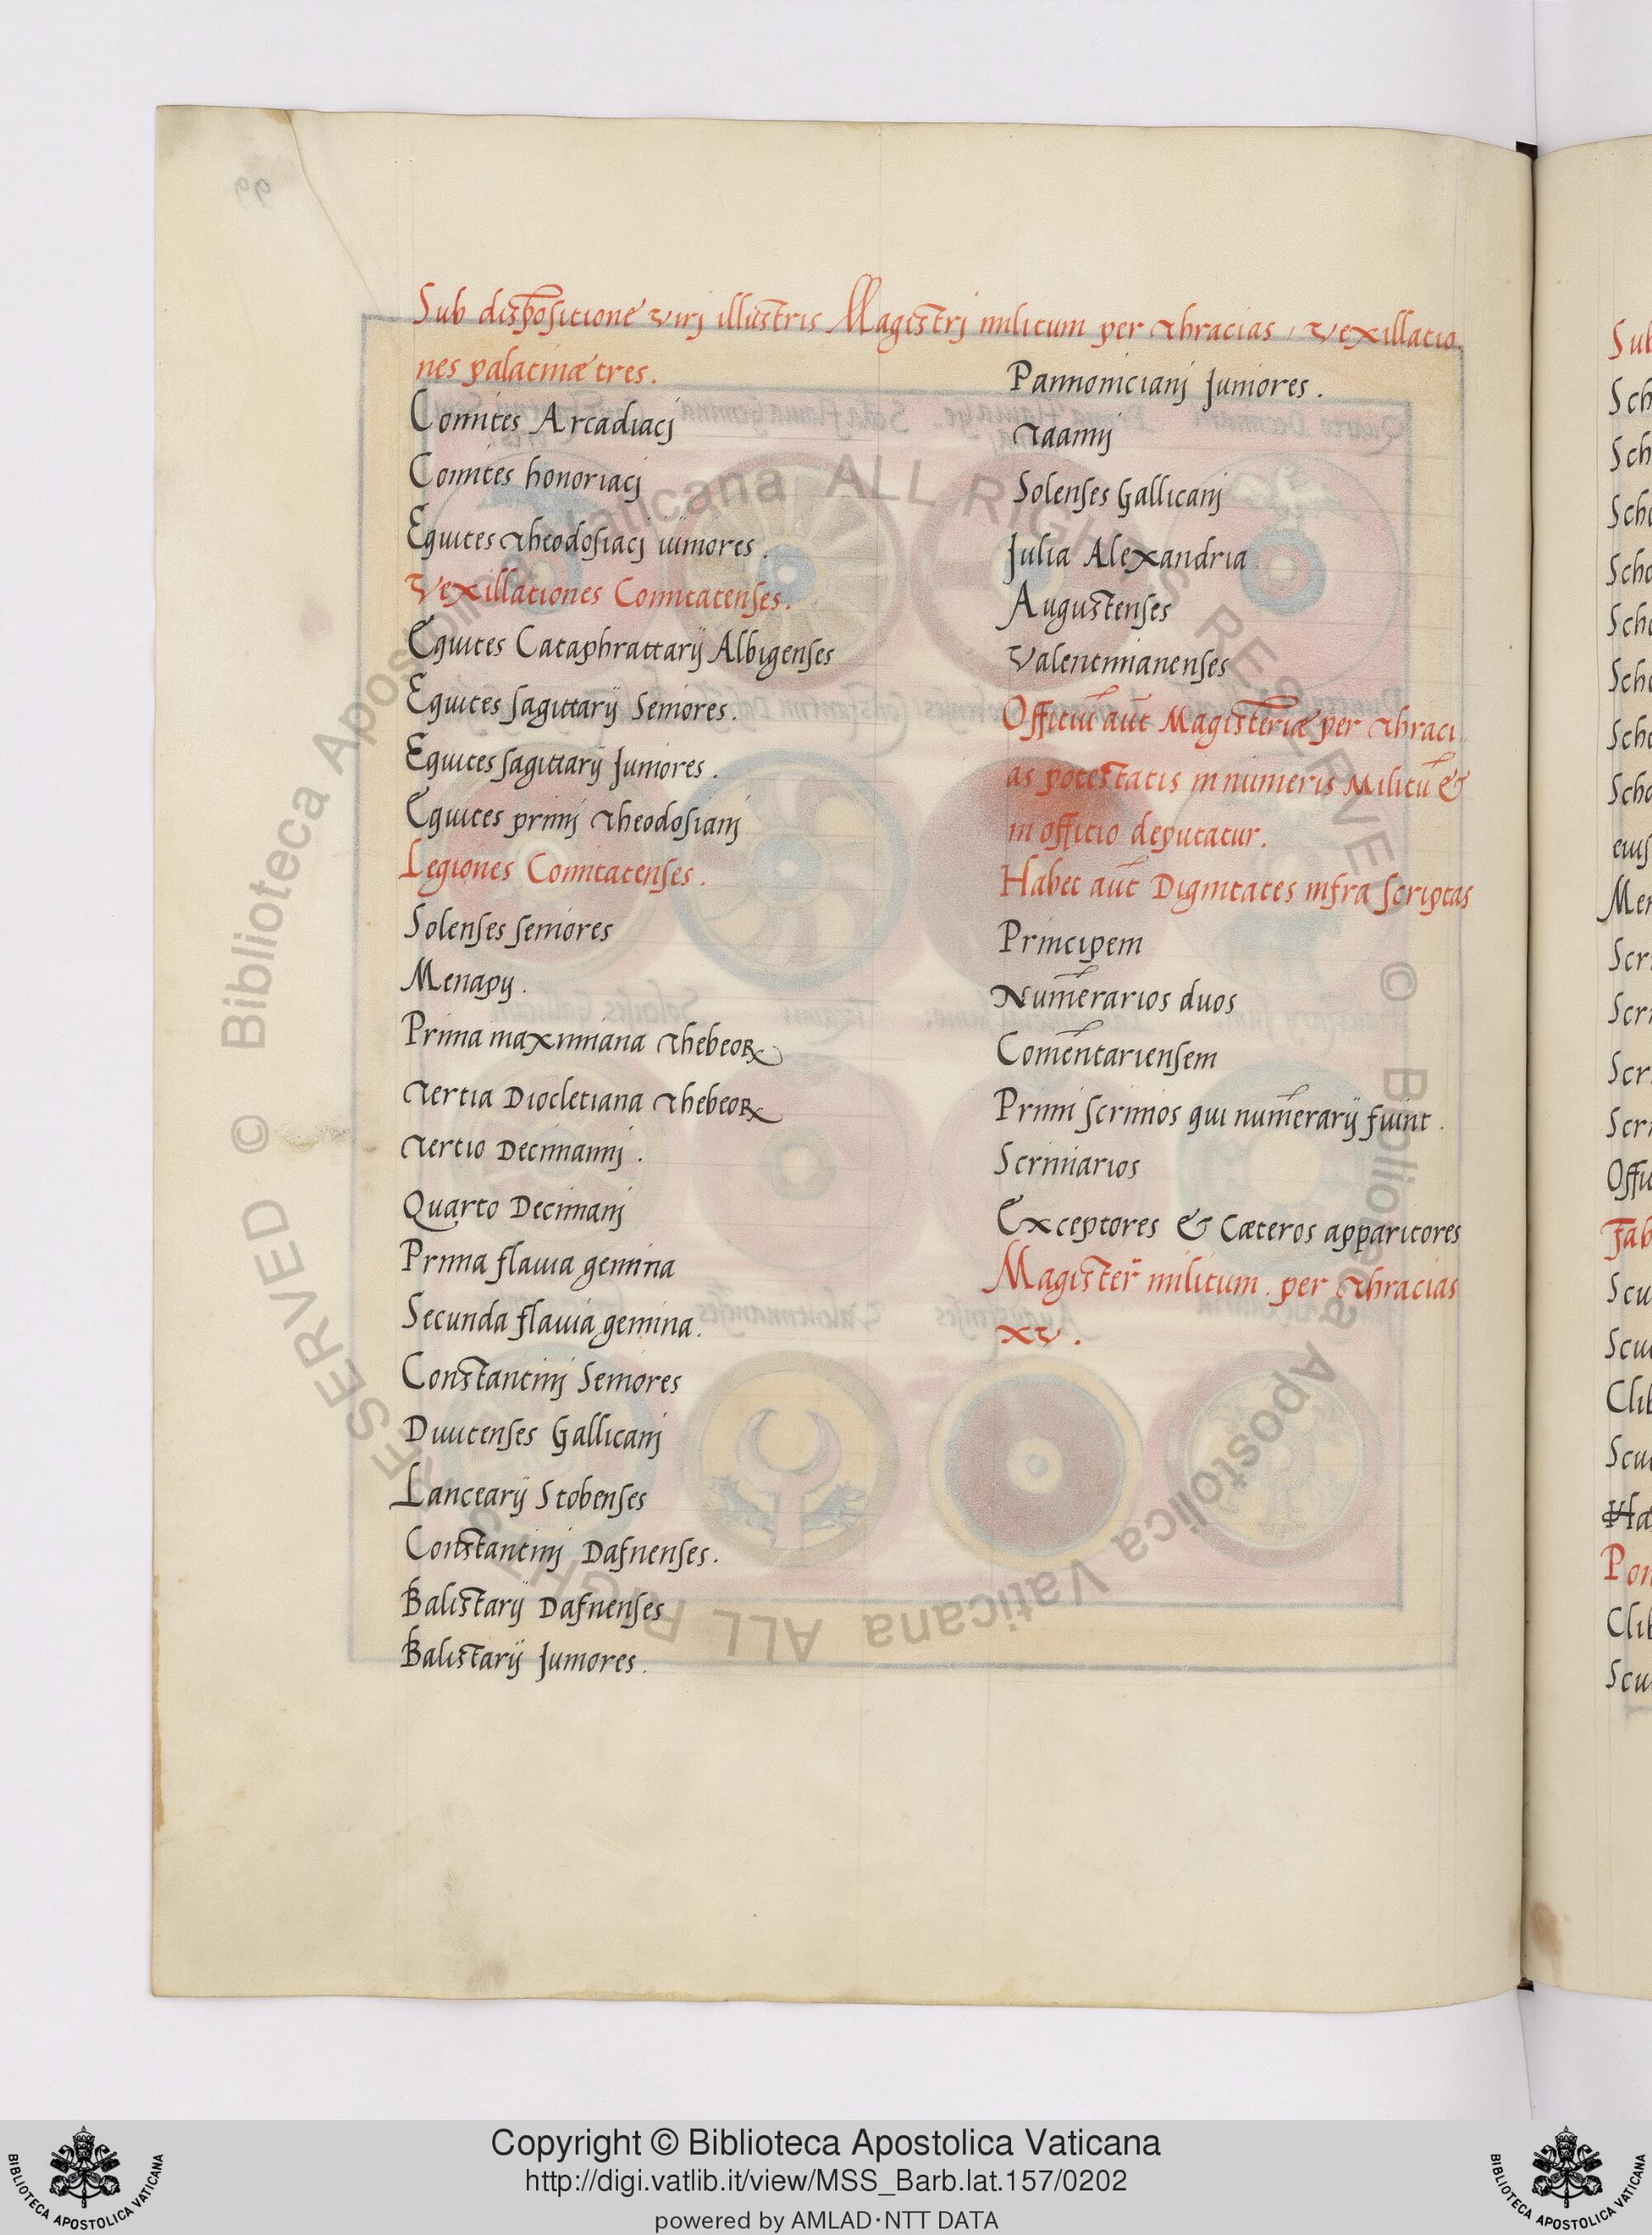 Sub dispositione virj illustris Magistrj militum per thracias, vexillatio
nes palatinæ tres.
Comites Arcadiacj
Comites honoriacj
Equites theodosiacj iuniores.
Vexillationes Comitatenses.
Equites Cataphrattarij Albigenses
Equites sagittarij Seniores.
Equites sagittarij Juniores.
Equites primj theodosianj
Legiones Comitatenses.
Solenses seniores
Menapy.
Prima maximiana thebeoꝝ
Tertia Diocletiana thebeoꝝ
Tertio Decimanij.
Quarto Decimanj
Prima flauia gemina
Secunda flauia gemina.
Constantinj Seniores
Diuitenses Gallicanj
Lancearij Stobenses
Constantinj Dafnenses.
Balistarij Dafnenses
Balistarij Juniores.
Pannonicianj Juniores.
Taanij
Solenses Gallicanj
Julia Alexandria
Augustenses
Valentinianenses
Officiū aūt Magisteriæ per thraci
as potestatis in numeris Militū &
in officio deputatur.
Habet aūt Dignitates infra scriptas
Principem
Num̄erarios duos
Com̄entariensem
Primi scrinios qui num̄erarij fuint.
Scriniarios
Exceptores & Cæteros apparitores
Magister̄ militum. per thracias
xv.
99
© Biblioteca Apostolica Vaticana ALL RIGHTS RESERVED
© Biblioteca Apostolica Vaticana ALL RIGHTS RESERVED
Copyright © Biblioteca Apostolica Vaticana
http://digi.vatlib.it/view/MSS_Barb.lat.157/0202
powered by AMLAD·NTT DATA
BIBLIOTECA APOSTOLICA VATICANA
BIBLIOTECA APOSTOLICA VATICANA